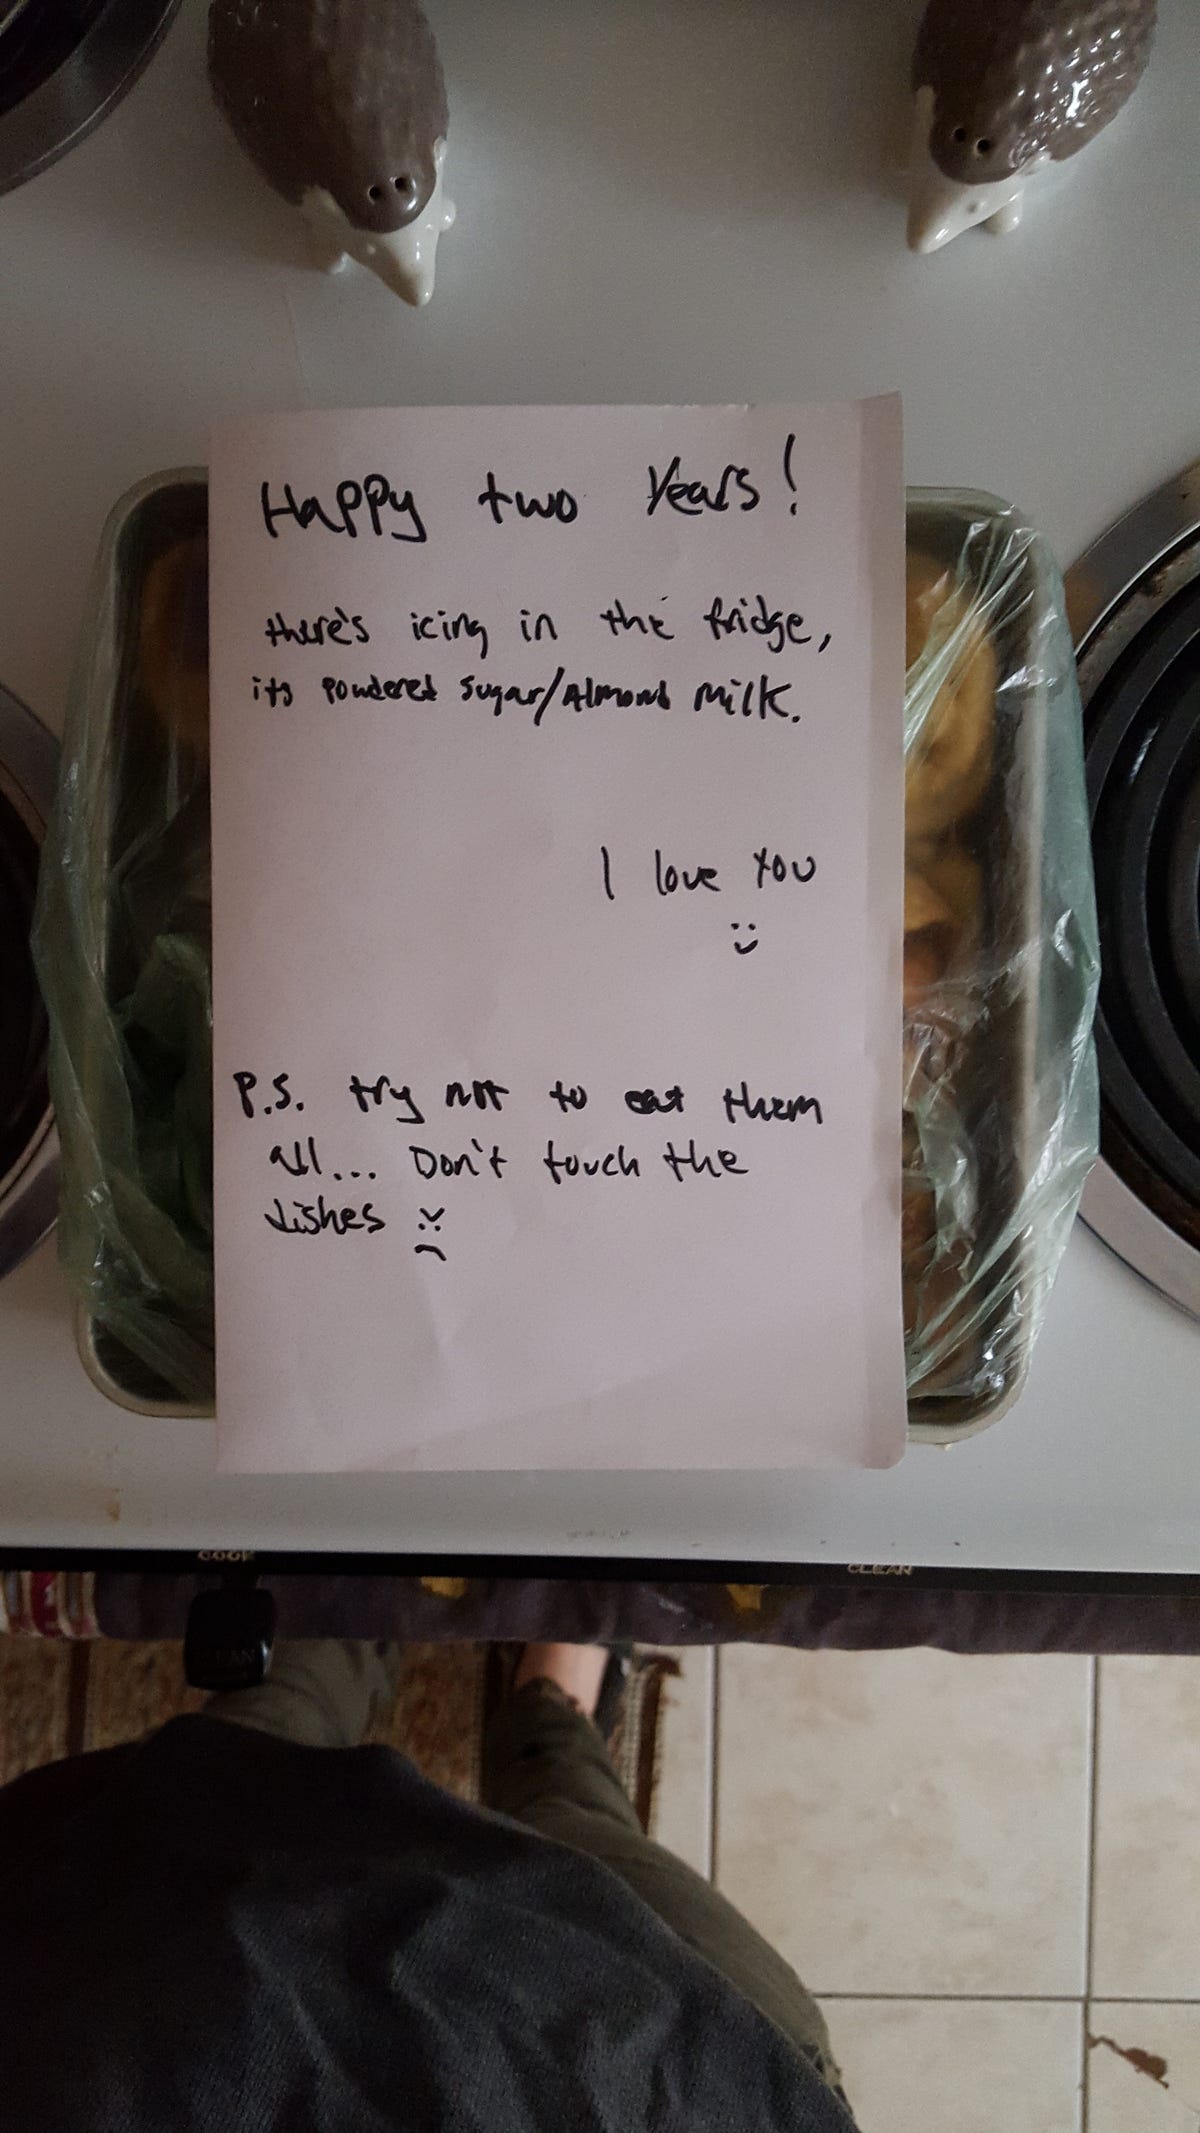 Happy two Years!
there's icing in the fridge,
its powdered sugar/Almond Milk.
I love You
:)
P.S. try not to eat them
all... Don't touch the
dishes >:(
COOK
CLEAN